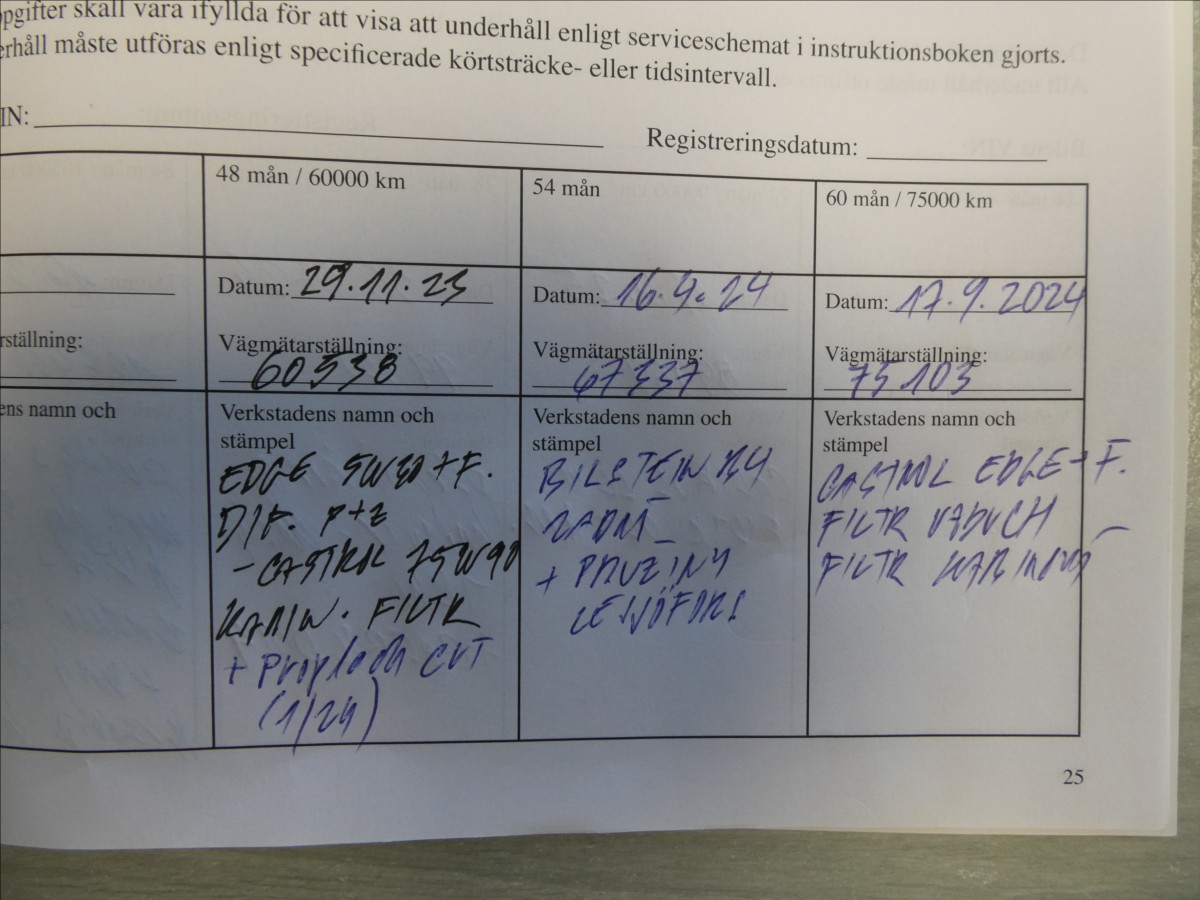 pgifter skall vara ifyllda för att visa att underhåll enligt serviceschemat i instruktionsboken gjorts.
erhåll måste utföras enligt specificerade körtsträcke- eller tidsintervall.
IN:
Registreringsdatum:
rställning:
ens namn och
48 mån / 60000 km
Datum: 29.11.23
Vägmätarställning:
60538
Verkstadens namn och
stämpel
EDGE 5W30 + F.
DIF. P+Z
- CASTROL 75W90
KABIN. FILTR
+ Proplach CVT
(1/24)
54 mån
Datum: 16.4.24
Vägmätarställning:
67337
Verkstadens namn och
stämpel
BILSTEIN B4
ZADNÍ
+ PRUŽINY
LESJÖFORS
60 mån / 75000 km
Datum: 17.9.2024
Vägmätarställning:
75103
Verkstadens namn och
stämpel
CASTROL EDGE + F.
FILTR VZDUCH
FILTR KABINOVÝ
25